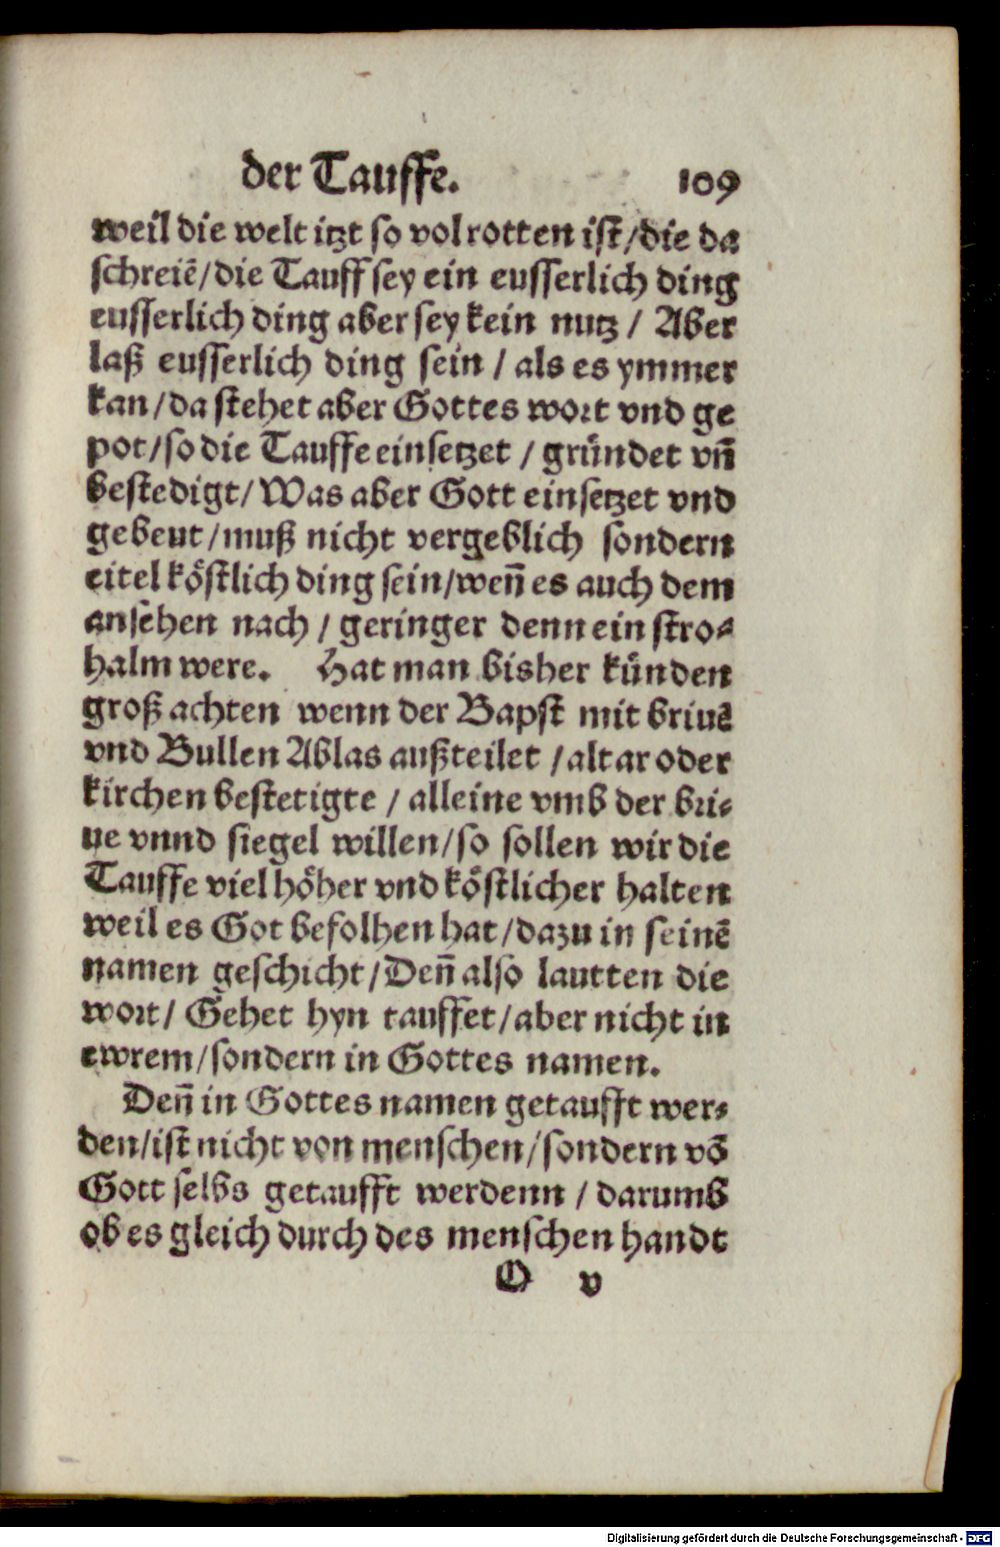 der Tauffe. 109
weil die welt itzt so vol rotten ist/die da
schreiē/die Tauff sey ein eusserlich ding
eusserlich ding aber sey kein nutz / Aber
laß eusserlich ding sein / als es ymmer
kan/da stehet aber Gottes wort vnd ge
pot/so die Tauffe einsetzet / gründet vn̄
bestedigt/Was aber Gott einsetzet vnd
gebeut/muß nicht vergeblich sondern
eitel köstlich ding sein/wen̄ es auch dem
ansehen nach / geringer denn ein stro⸗
halm were. Hat man bisher künden
groß achten wenn der Bapst mit briuē
vnd Bullen Ablas außteilet /altar oder
kirchen bestetigte / alleine vmb der bri⸗
ue vnnd siegel willen/so sollen wir die
Tauffe viel höher vnd köstlicher halten
weil es Got befolhen hat/dazu in seinē
namen geschicht/Den̄ also lautten die
wort/ Gehet hyn tauffet/aber nicht in
ewrem/sondern in Gottes namen.
Den̄ in Gottes namen getaufft wer⸗
den/ist nicht von menschen/sondern vō
Gott selbs getaufft werdenn / darumb
ob es gleich durch des menschen handt
O v
Digitalisierung gefördert durch die Deutsche Forschungsgemeinschaft - DFG